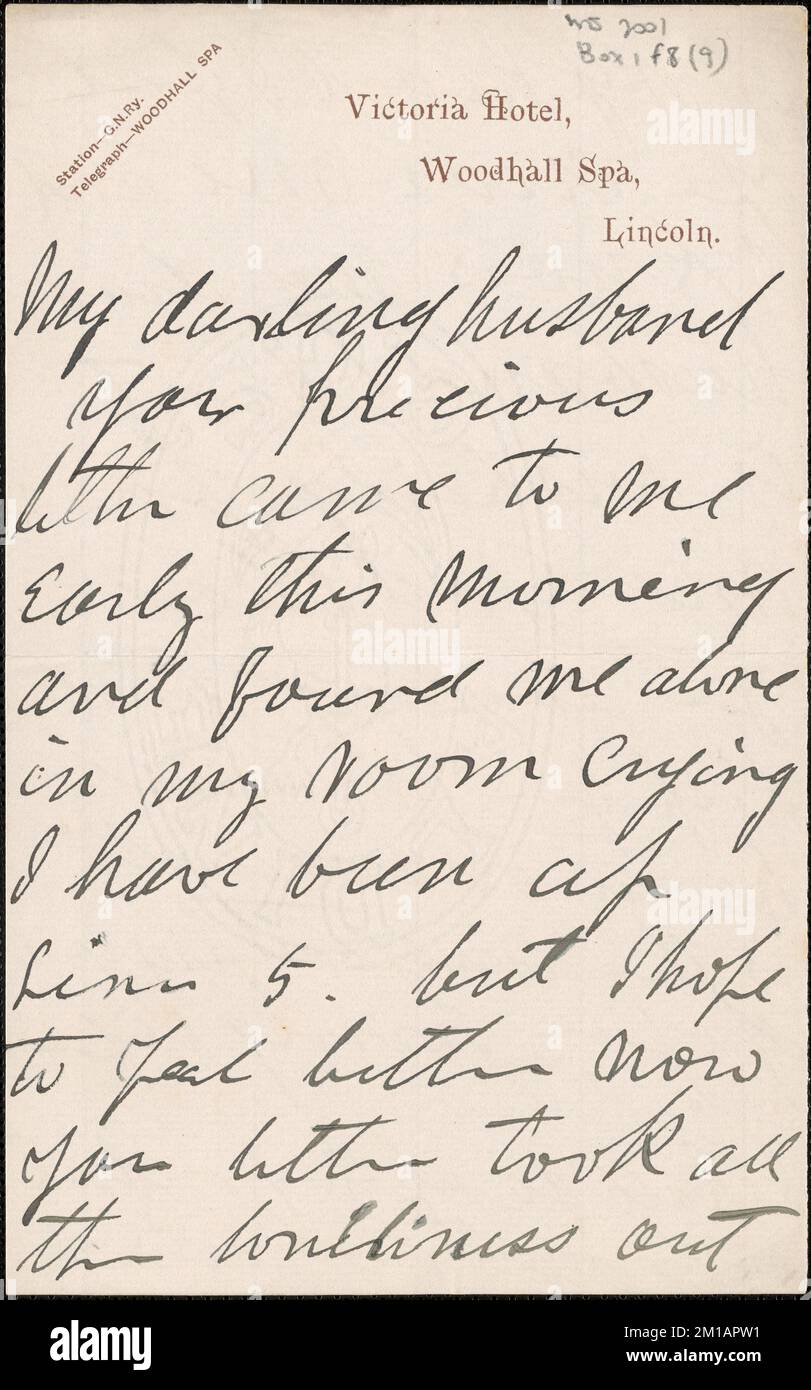 MS 2001
Box 1 f8 (9)
Station—G.N.Ry.
Telegraph—WOODHALL SPA
Victoria Hotel,
Woodhall Spa,
Lincoln.
My darling husband
your precious
letter came to me
early this morning
and found me alone
in my room crying
I have been up
since 5. but I hope
to feel better now
your letter took all
the loneliness out
alamy
alamy
alamy
alamy
alamy
Image ID: 2M1APW1
www.alamy.com